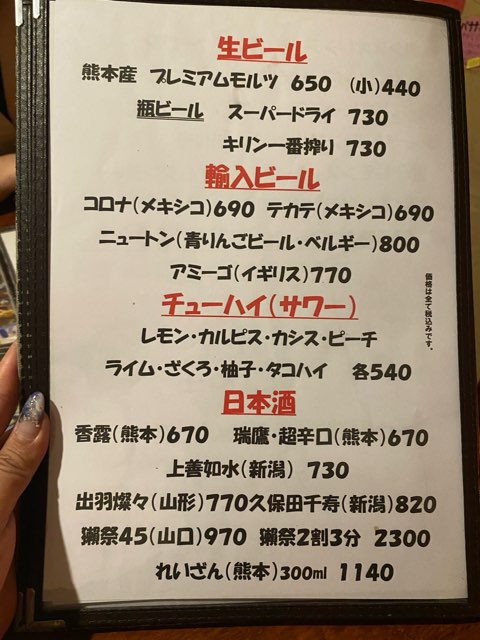 生ビール
熊本産 プレミアムモルツ 650 (小)440
瓶ビール スーパードライ 730
キリン一番搾り 730
輸入ビール
コロナ(メキシコ)690 テカテ(メキシコ)690
ニュートン(青りんごビール・ベルギー)800
アミーゴ(イギリス)770
価格は全て税込みです。
チューハイ(サワー)
レモン・カルピス・カシス・ピーチ
ライム・ざくろ・柚子・タコハイ 各540
日本酒
香露(熊本)670 瑞鷹・超辛口(熊本)670
上善如水(新潟) 730
出羽燦々(山形)770久保田千寿(新潟)820
獺祭45(山口)970 獺祭2割3分 2300
れいざん(熊本)300ml 1140